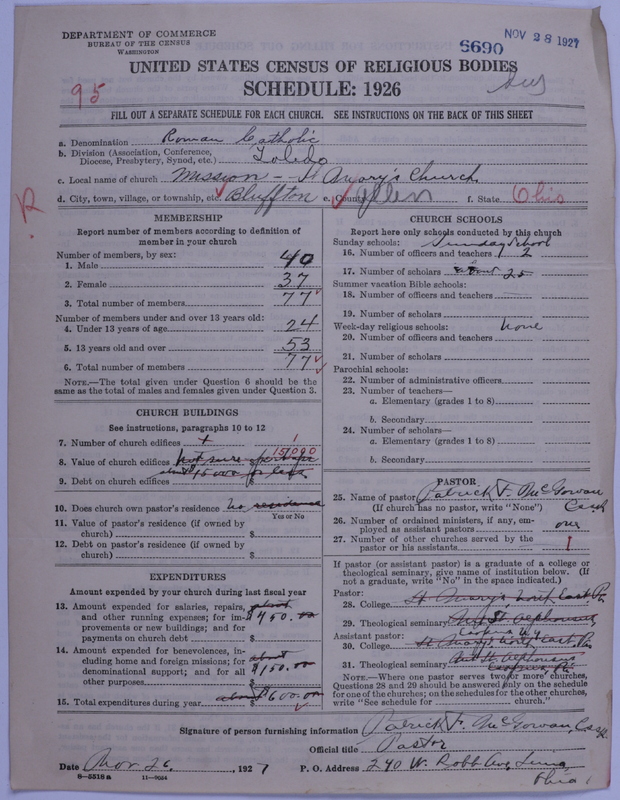 DEPARTMENT OF COMMERCE
BUREAU OF THE CENSUS
WASHINGTON
6690
NOV 28 1927
UNITED STATES CENSUS OF RELIGIOUS BODIES
95
SCHEDULE: 1926
FILL OUT A SEPARATE SCHEDULE FOR EACH CHURCH. SEE INSTRUCTIONS ON THE BACK OF THIS SHEET
a. Denomination Roman Catholic
b. Division (Association, Conference, Diocese, Presbytery, Synod, etc.) Toledo
c. Local name of church Mission - St Mary's Church
d. City, town, village, or township, etc. Bluffton e. County Allen f. State Ohio
R
MEMBERSHIP
Report number of members according to definition of
member in your church
Number of members, by sex:
1. Male 40
2. Female 37
3. Total number of members 77
Number of members under and over 13 years old:
4. Under 13 years of age 24
5. 13 years old and over 53
6. Total number of members 77
NOTE.—The total given under Question 6 should be
same as the total of males and females given under Question 3.
CHURCH BUILDINGS
See instructions, paragraphs 10 to 12
7. Number of church edifices 1
8. Value of church edifices not sure 15,000
9. Debt on church edifices $
about 15000 or less
10. Does church own pastor's residence? no residence
Yes or No
11. Value of pastor's residence (if owned by
church) $
12. Debt on pastor's residence (if owned by
church) $
EXPENDITURES
Amount expended by your church during last fiscal year
13. Amount expended for salaries, repairs, about
and other running expenses; for im- $450.00
provements or new buildings; and for
payments on church debt
14. Amount expended for benevolences, in- about
cluding home and foreign missions; for $150.00
denominational support; and for all
other purposes $
15. Total expenditures during year about $600.00
CHURCH SCHOOLS
Report here only schools conducted by this church
Sunday schools: Sunday School
16. Number of officers and teachers 2
17. Number of scholars about 25
Summer vacation Bible schools:
18. Number of officers and teachers
19. Number of scholars
Week-day religious schools: none
20. Number of officers and teachers
21. Number of scholars
Parochial schools:
22. Number of administrative officers
23. Number of teachers—
a. Elementary (grades 1 to 8)
b. Secondary
24. Number of scholars—
a. Elementary (grades 1 to 8)
b. Secondary
PASTOR
25. Name of pastor Patrick F. McGowan
(If church has no pastor, write "None")
26. Number of ordained ministers, if any, em-
ployed as assistant pastors one
27. Number of other churches served by the
pastor or his assistants 1
If pastor (or assistant pastor) is a graduate of a college or
theological seminary, give name of institution below. (If
not a graduate, write "No" in the space indicated.)
Pastor:
28. College St Mary's North East Pa
29. Theological seminary
Assistant pastor:
30. College St Mary's North East Pa
31. Theological seminary
NOTE.—Where one pastor serves two or more churches,
Questions 28 and 29 should be answered only on the schedule
for one of the churches; on the schedules for the other churches,
write "See schedule for church."
Signature of person furnishing information Patrick F. McGowan, C.Ss.R.
Official title Pastor
Date Nov 26, 1927 P. O. Address 240 W. Robb Ave, Lima,
Ohio
8—5518 a 11—9054